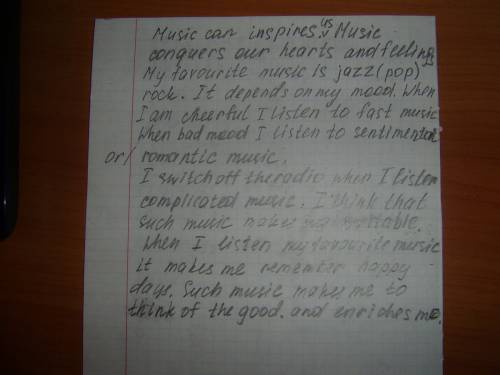 Music can inspires us. Music
conquers our hearts and feelings
My favourite music is jazz (pop)
rock. It depends on my mood. When
I am cheerful I listen to fast music
When bad mood I listen to sentimental
or/ romantic music.
I switch off the radio when I listen
complicated music. I think that
such music makes
When I listen my favourite mersic
it makes me remember happy
days. Such music makes me to
think of the good. and enriches me.